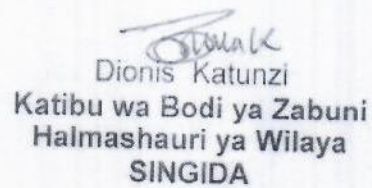 Dionis Katunzi
Katibu wa Bodi ya Zabuni
Halmashauri ya Wilaya
SINGIDA